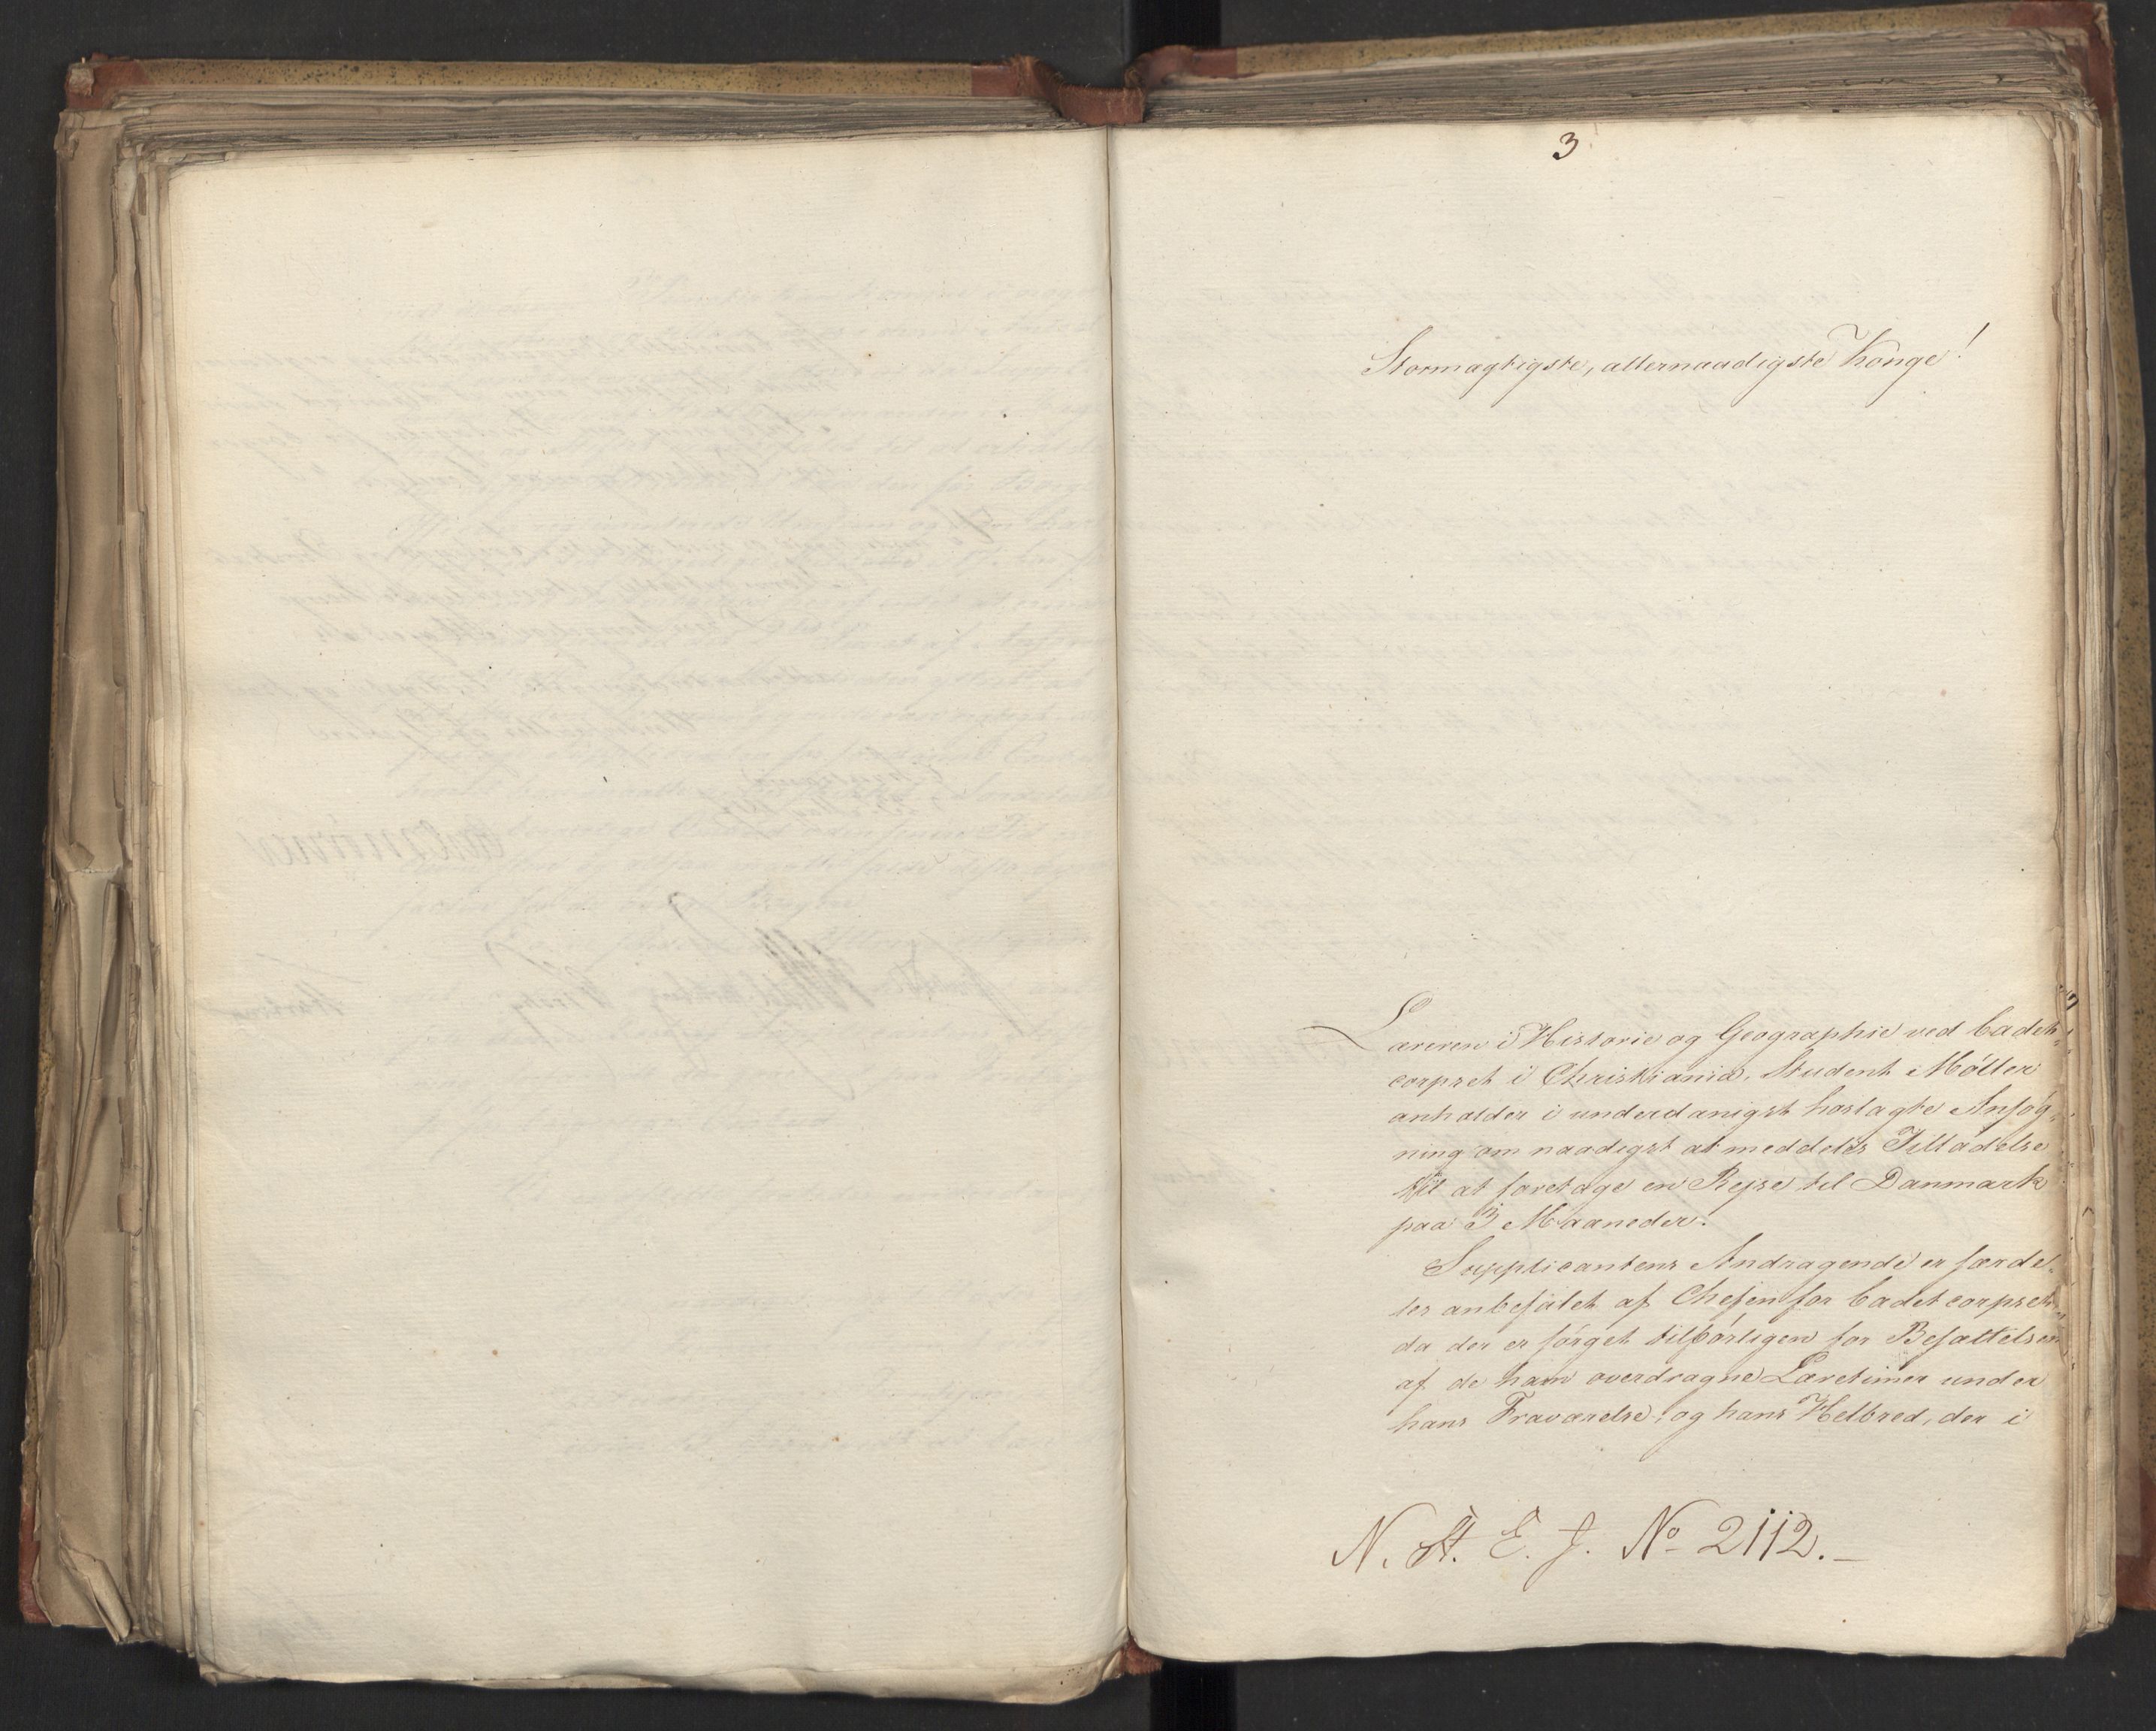 3
Stormægtigste, allernaadigste Konge!
Læreren i Historie og Geographie ved Cadet-
corpset i Christiania, Student Møller
anholder i underdanigst hoslagte Ansøg-
ning om naadigst at meddeles Tilladelse
til at foretage en Rejse til Danmark
paa 3 Maaneder.
Supplicantens Andragende er særde-
les anbefalet af Chefen for Cadetcorpset
da der er sørget tilbørligen for Besættelsen
af de ham overdragne Læretimer under
hans Fraværelse, og hans Helbred, der i
N. St. E. J. No 2112.